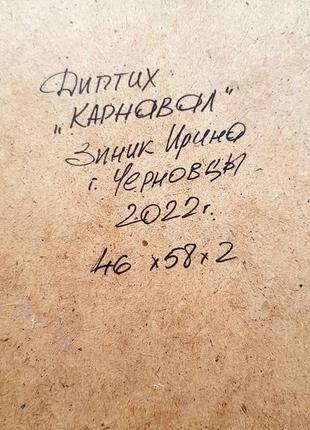 Диптих
"Карнавал"
Зиник Ирина
г. Черновцы
2022г.
46 x 58 x 2